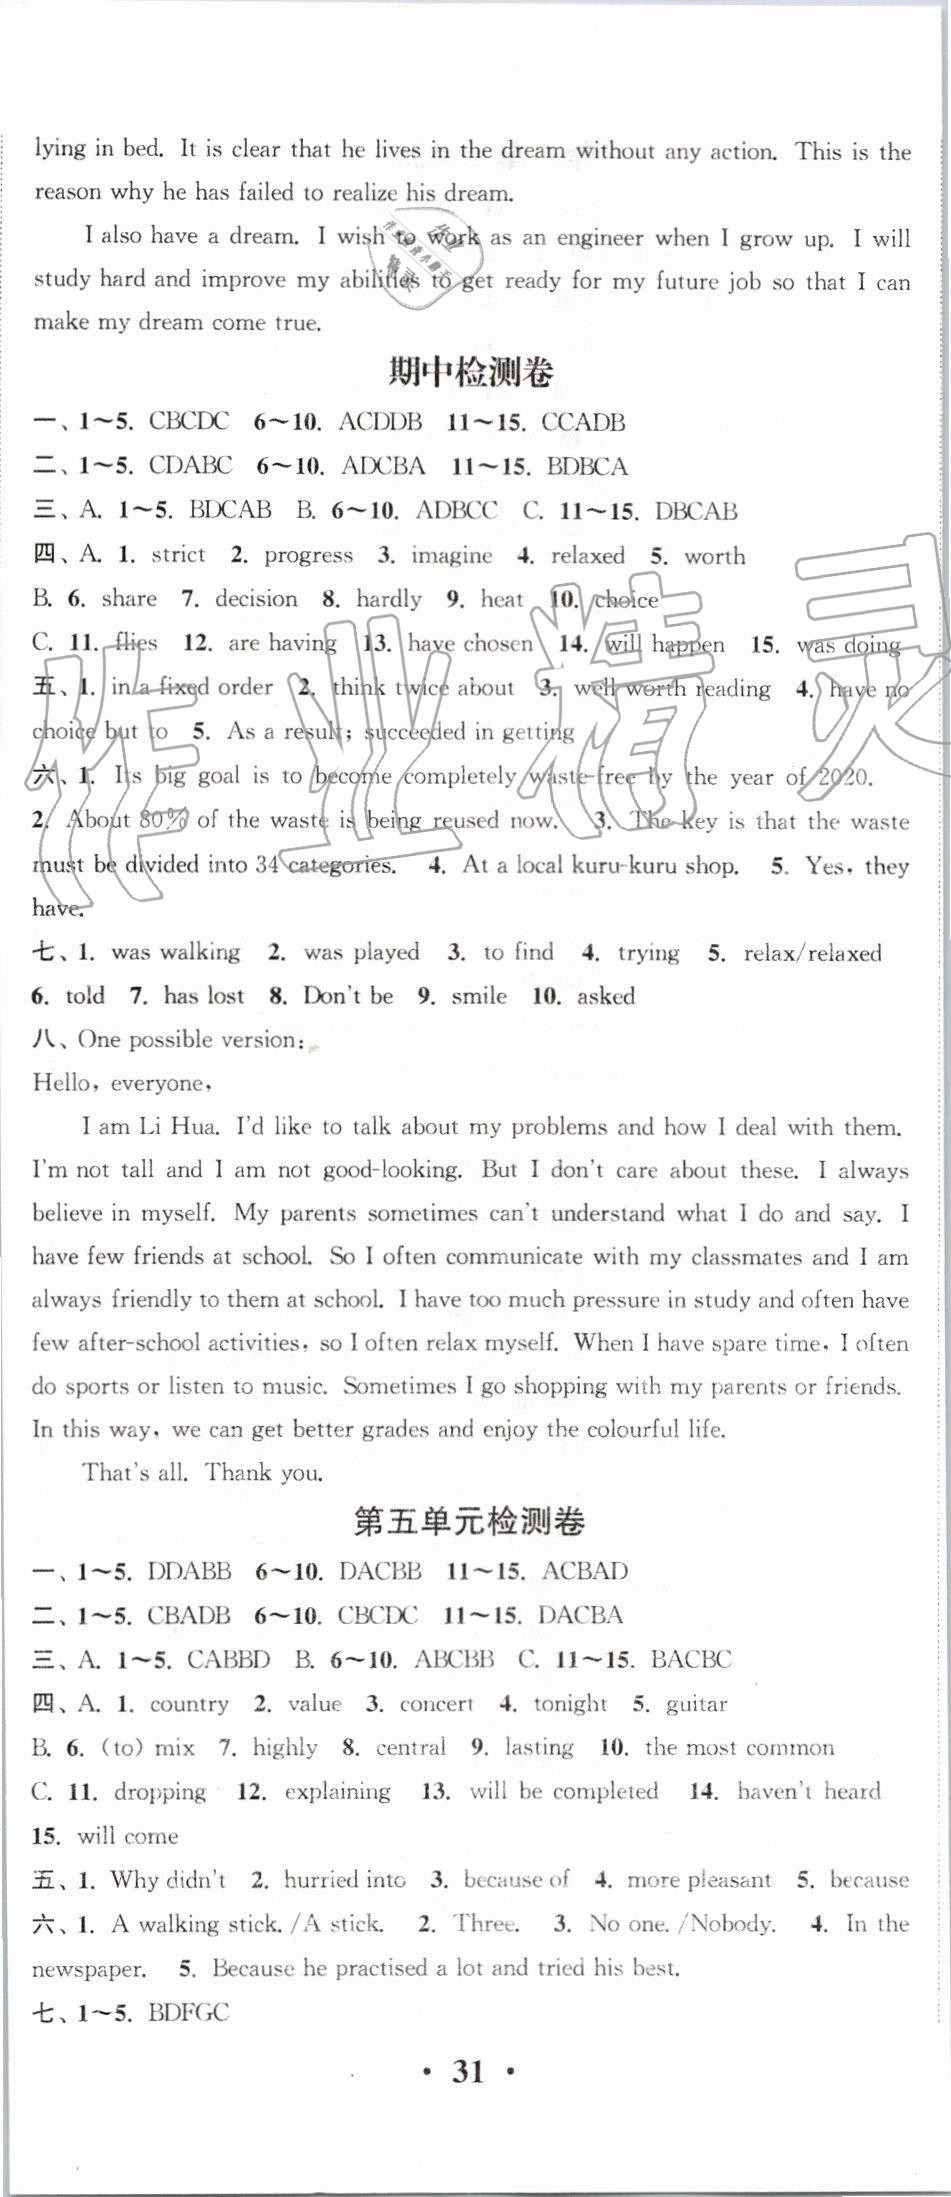 lying in bed. It is clear that he lives in the dream without any action. This is the
reason why he has failed to realize his dream.
I also have a dream. I wish to work as an engineer when I grow up. I will
study hard and improve my abilities to get ready for my future job so that I can
make my dream come true.
期中检测卷
一、1～5. CBCDC 6～10. ACDDB 11～15. CCADB
二、1～5. CDABC 6～10. ADCBA 11～15. BDBCA
三、A. 1～5. BDCAB B. 6～10. ADBCC C. 11～15. DBCAB
四、A. 1. strict 2. progress 3. imagine 4. relaxed 5. worth
B. 6. share 7. decision 8. hardly 9. heat 10. choice
C. 11. flies 12. are having 13. have chosen 14. will happen 15. was doing
五、1. in a fixed order 2. think twice about 3. well worth reading 4. have no
choice but to 5. As a result; succeeded in getting
六、1. Its big goal is to become completely waste-free by the year of 2020.
2. About 80% of the waste is being reused now. 3. The key is that the waste
must be divided into 34 categories. 4. At a local kuru-kuru shop. 5. Yes, they
have.
七、1. was walking 2. was played 3. to find 4. trying 5. relax/relaxed
6. told 7. has lost 8. Don't be 9. smile 10. asked
八、One possible version:
Hello, everyone,
I am Li Hua. I'd like to talk about my problems and how I deal with them.
I'm not tall and I am not good-looking. But I don't care about these. I always
believe in myself. My parents sometimes can't understand what I do and say. I
have few friends at school. So I often communicate with my classmates and I am
always friendly to them at school. I have too much pressure in study and often have
few after-school activities, so I often relax myself. When I have spare time, I often
do sports or listen to music. Sometimes I go shopping with my parents or friends.
In this way, we can get better grades and enjoy the colourful life.
That's all. Thank you.
第五单元检测卷
一、1～5. DDABB 6～10. DACBB 11～15. ACBAD
二、1～5. CBADB 6～10. CBCDC 11～15. DACBA
三、A. 1～5. CABBD B. 6～10. ABCBB C. 11～15. BACBC
四、A. 1. country 2. value 3. concert 4. tonight 5. guitar
B. 6. (to) mix 7. highly 8. central 9. lasting 10. the most common
C. 11. dropping 12. explaining 13. will be completed 14. haven't heard
15. will come
五、1. Why didn't 2. hurried into 3. because of 4. more pleasant 5. because
六、1. A walking stick. /A stick. 2. Three. 3. No one. /Nobody. 4. In the
newspaper. 5. Because he practised a lot and tried his best.
七、1～5. BDFGC
• 31 •
作业精灵